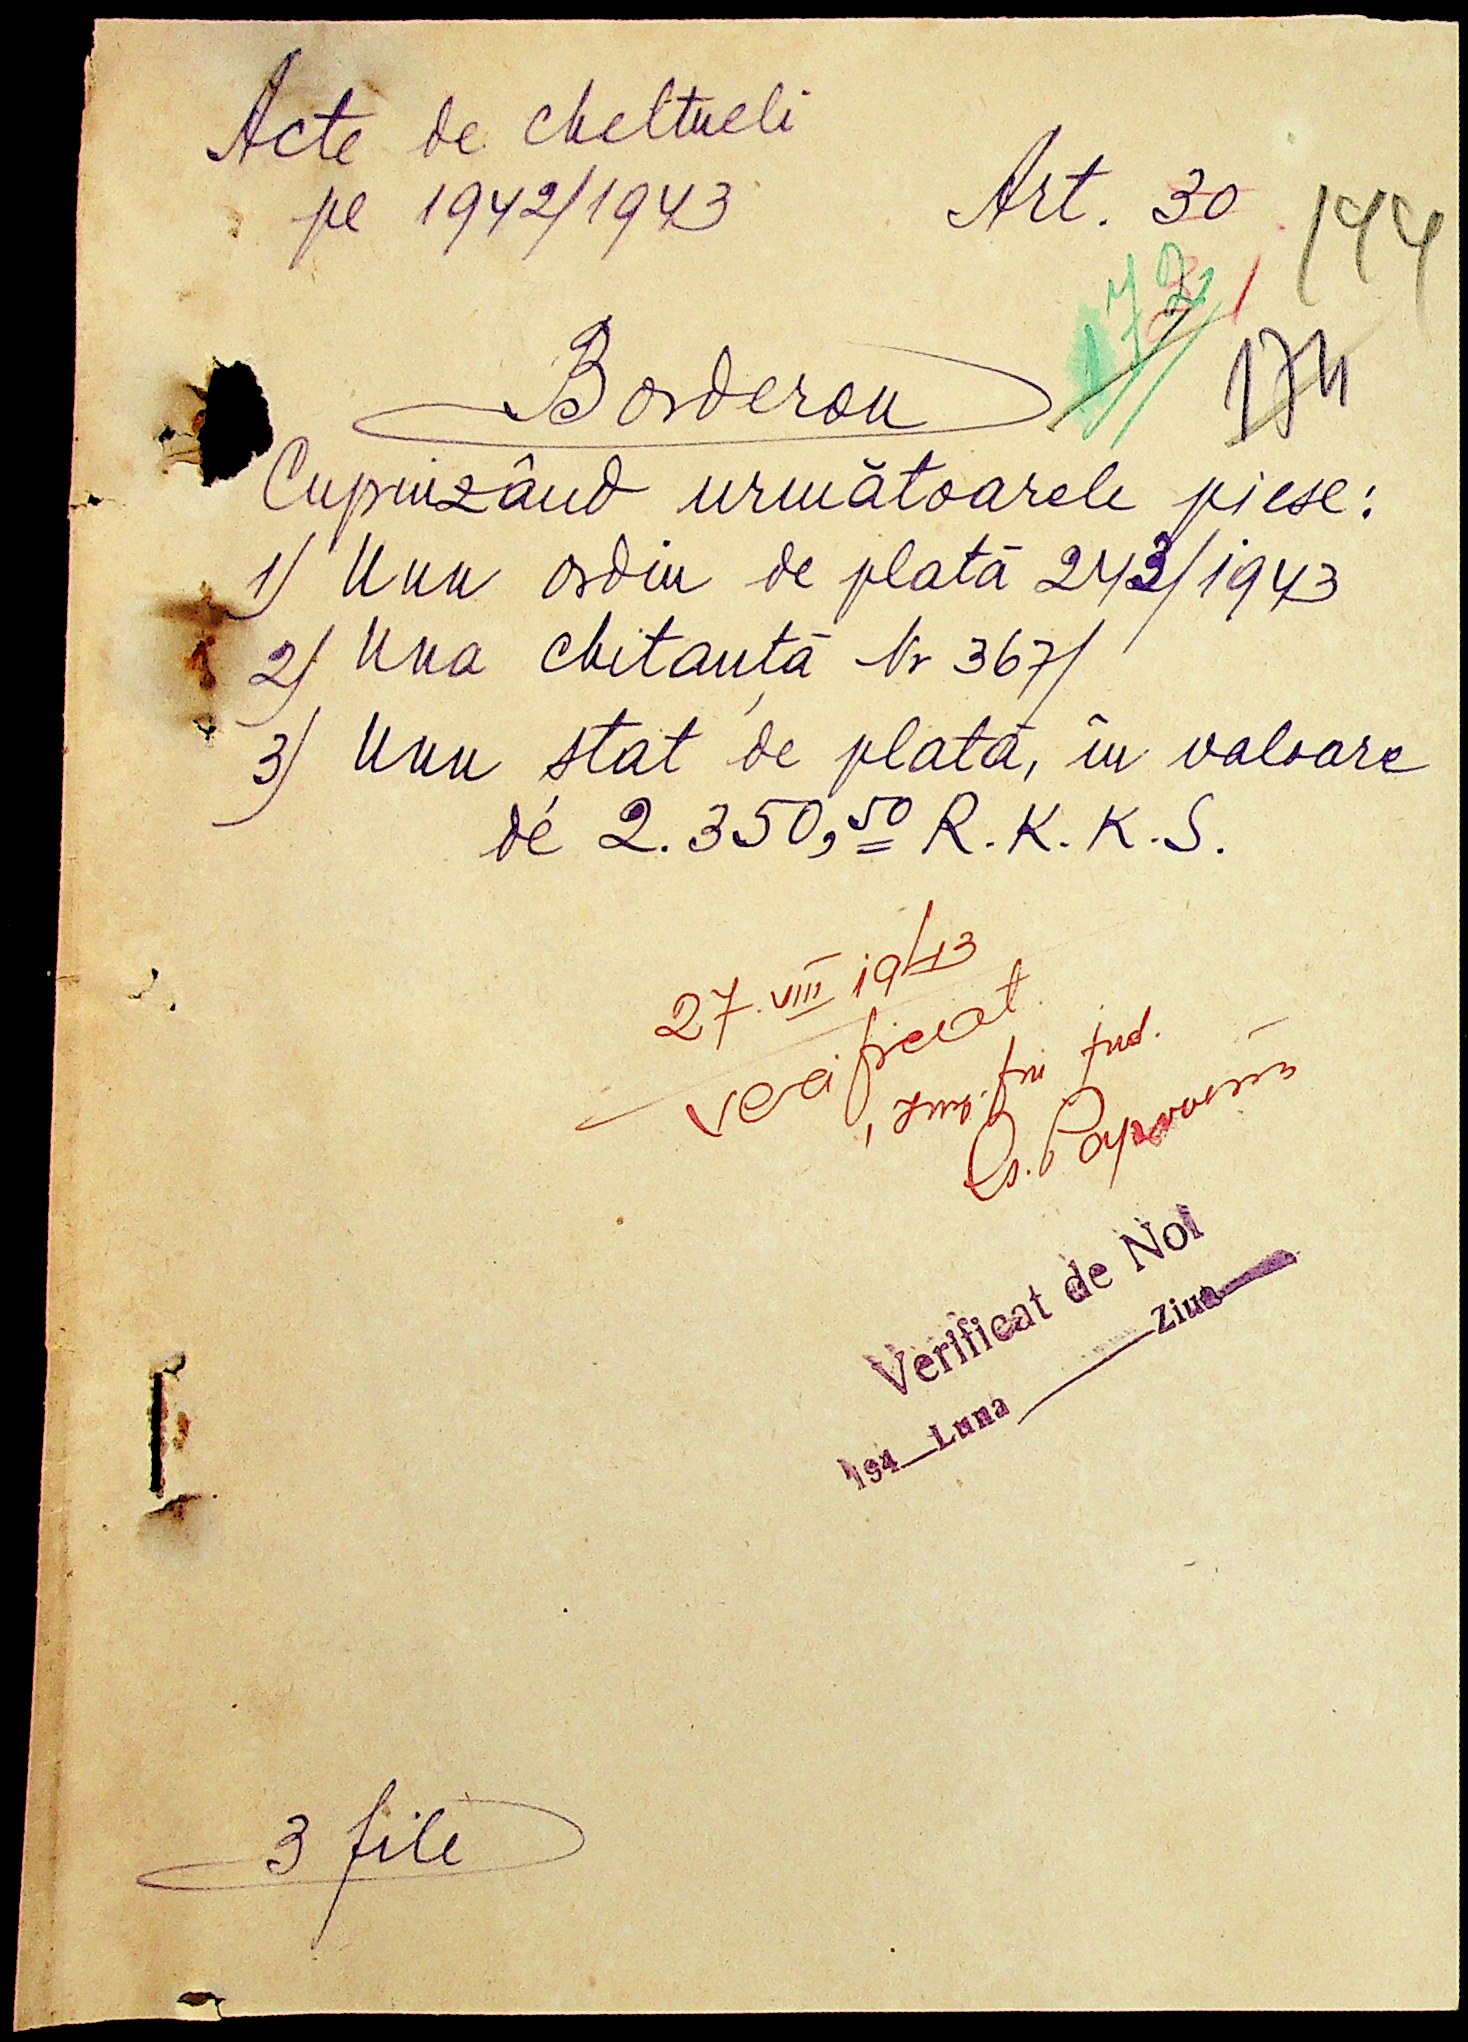 Acte de cheltueli
pe 1942/1943
Art. 30
144
172
174
Borderou
Cuprinzând următoarele piese:
1) Unu ordin de plată 243/1943
2) Una chitanță Nr 367/
3) Unu stat de plată, în valoare
de 2.350,50 R.K.K.S.
27.VIII 1943
verificat
fin jud.
Verificat de Noi
194 Luna Ziua
3 file